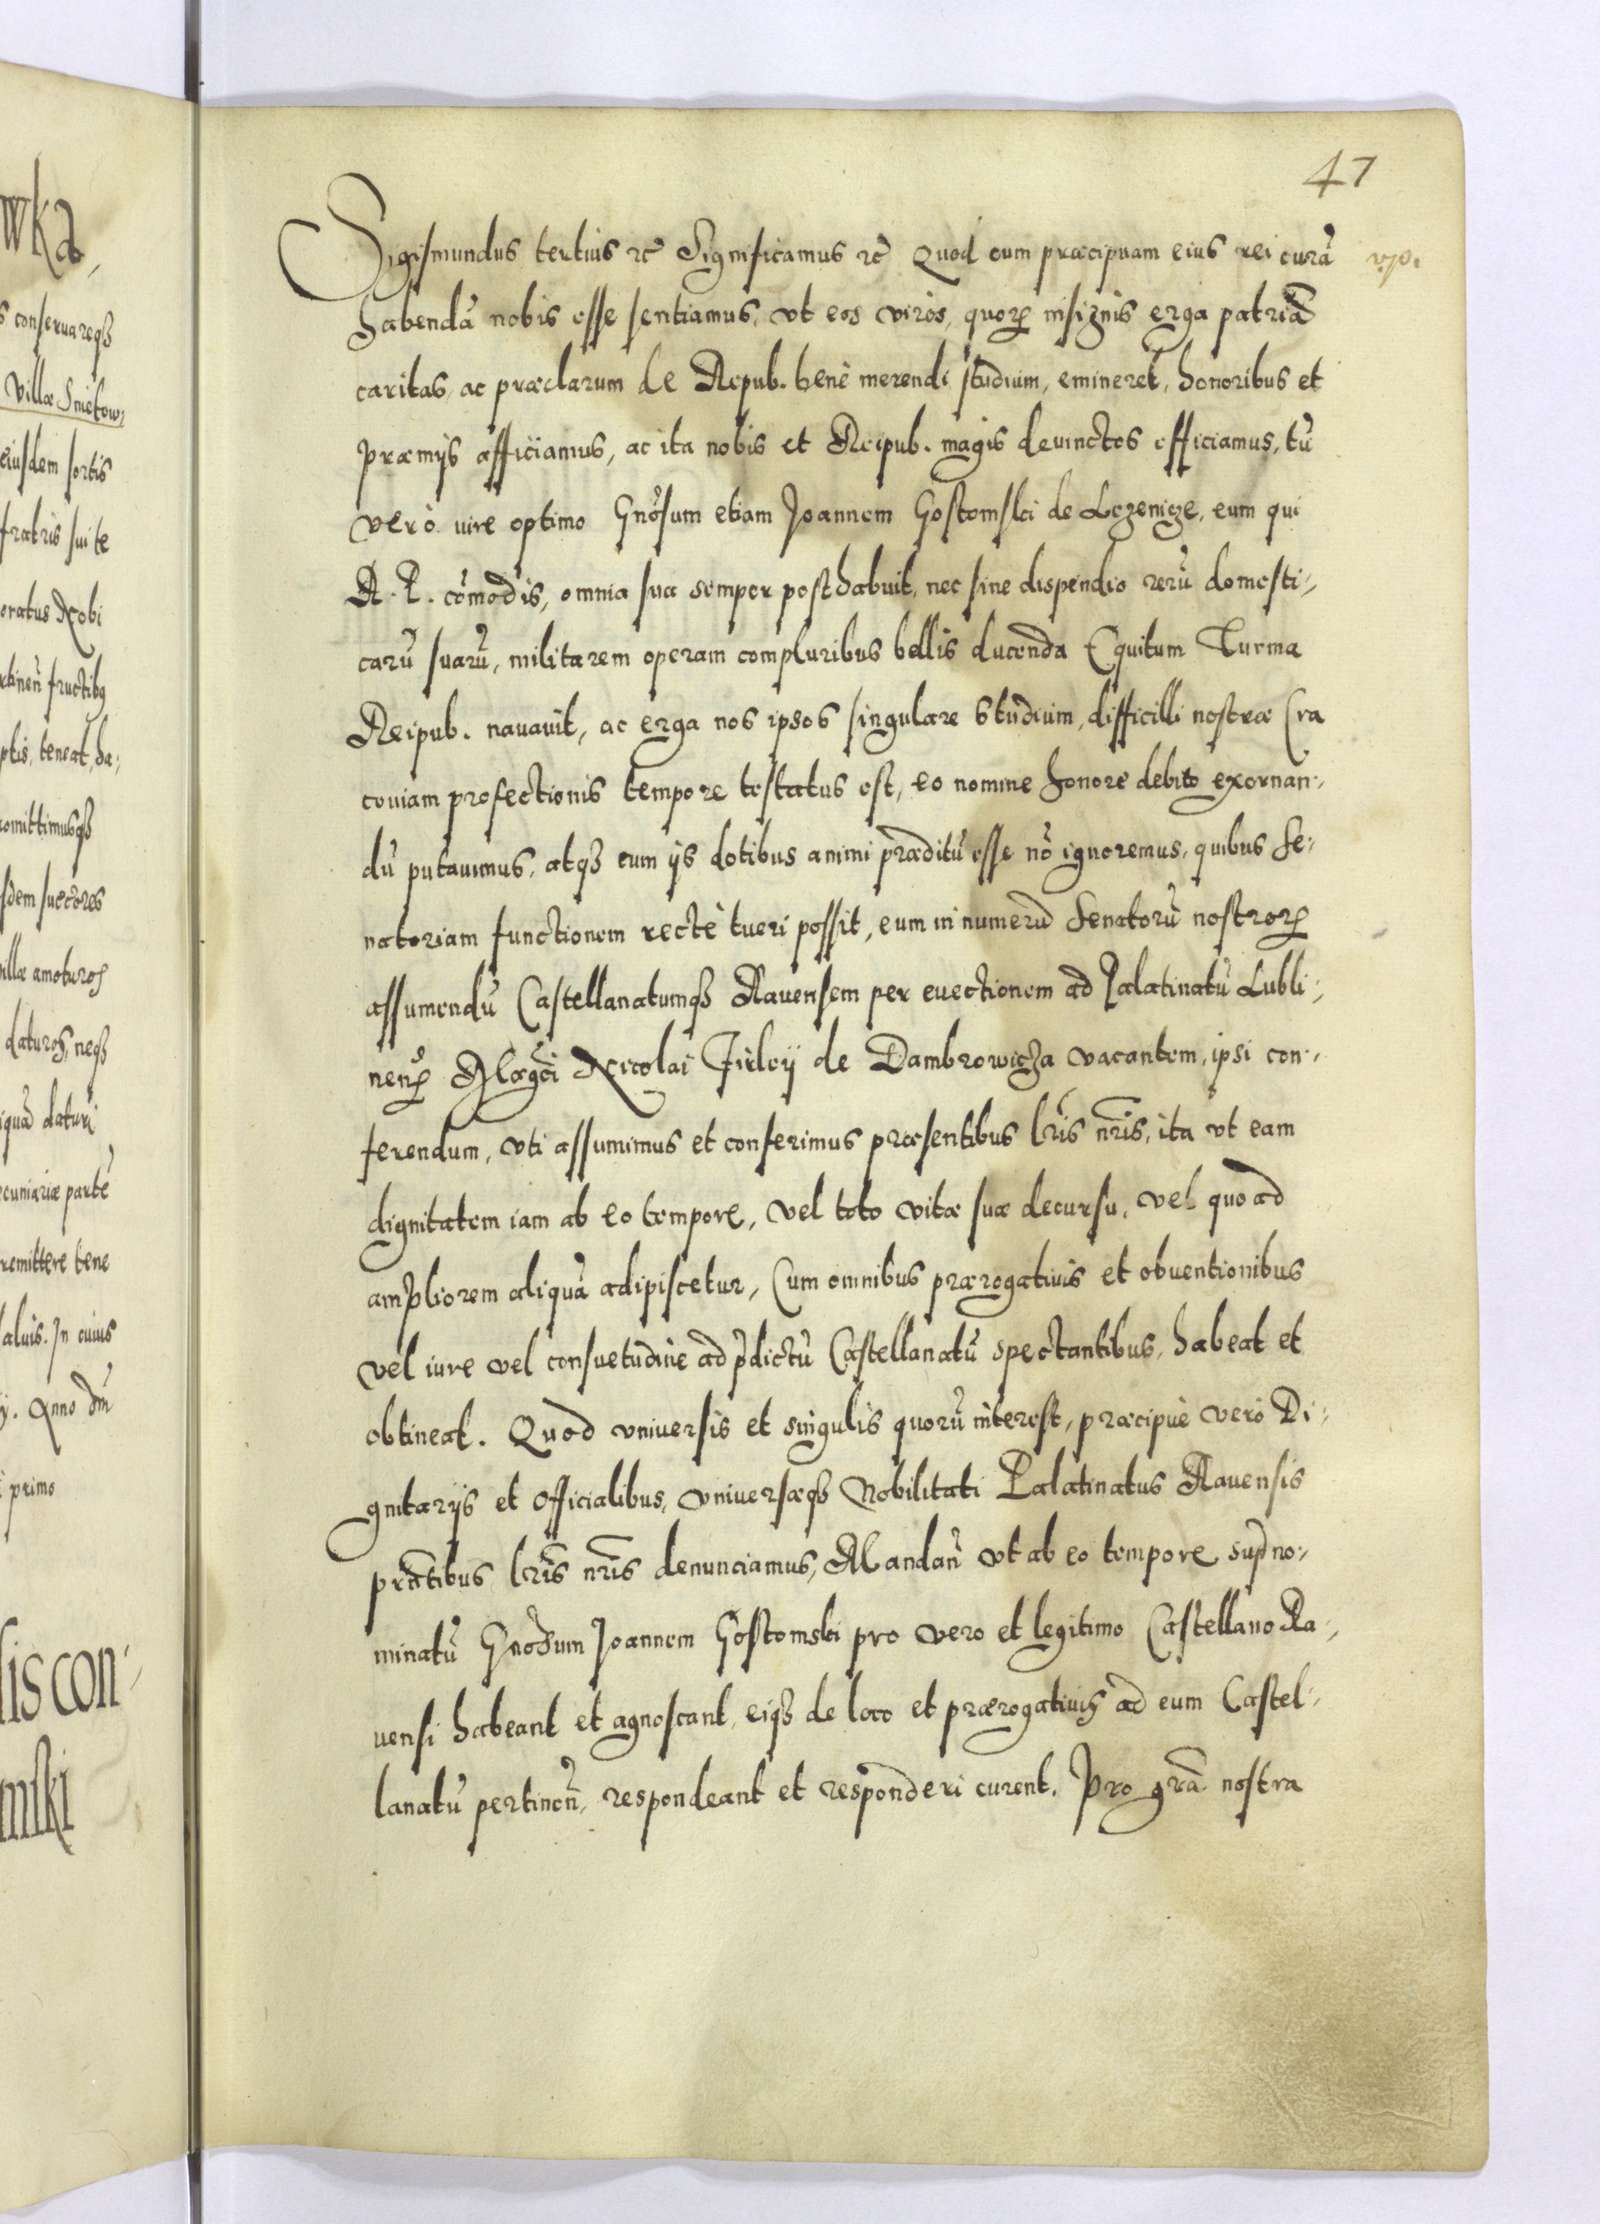 47
Sigismundus tertius etc̃ Significamus etc̃ Quod cum præcipuam eius rei curã
habendã nobis esse sentiamus, vt eos viros, quorꝝ insignis erga patriã
caritas, ac præclarum de Repub. benè merendi studium, emineret, honoribus et
præmijs afficiamus, ac ita nobis et Reipub. magis deuinctos efficiamus, tũ
verò iure optimo Gnõsum etiam Joannem Gostomski de Lezenicze, eum qui
R. P. cõmodis, omnia sua semper posthabuit, nec sine dispendio rerũ domesti-
carũ suarũ, militarem operam compluribus bellis ducenda Equitum Turma
Reipub. nauauit, ac erga nos ipsos singulare studium, difficilli nostræ Cra
couiam profectionis tempore testatus est, eo nomine honore debito exornan-
dũ putauimus, atqꝫ cum ijs dotibus animi præditũ esse nõ ignoremus, quibus Se-
natoriam functionem rectè tueri possit, eum in numerũ Senatorũ nostrorꝝ
assumendũ Castellanatumqꝫ Rauensem per euectionem ad Palatinatũ Lubli-
nenꝭ Magci Nicolai Firleij de Dambrowicza vacantem, ipsi con-
ferendum, vti assumimus et conferimus præsentibus lr̃is nr̃is, ita vt eam
dignitatem iam ab eo tempore, vel toto vitæ suæ decursu, vel quo ad
ampliorem aliquã adipiscetur, Cum omnibus prærogatiuis et obuentionibus
vel iure vel consuetudine ad p̃dictũ Castellanatũ spectantibus, habeat et
obtineat. Quod vniuersis et singulis quorũ interest, præcipuè verò Di-
gnitarijs et Officialibus, vniuersæqꝫ Nobilitati Palatinatus Rauensis
præñtibus lr̃is nr̃is denunciamus, Mandañ vt ab eo tempore supno-
minatũ Gnõsum Joannem Gostomski pro vero et legitimo Castellano Ra-
uensi habeant et agnoscant, eiqꝫ de loco et prærogatiuis ad eum Castel-
lanatũ pertineñ, respondeant et responderi curent. Pro grã nostra